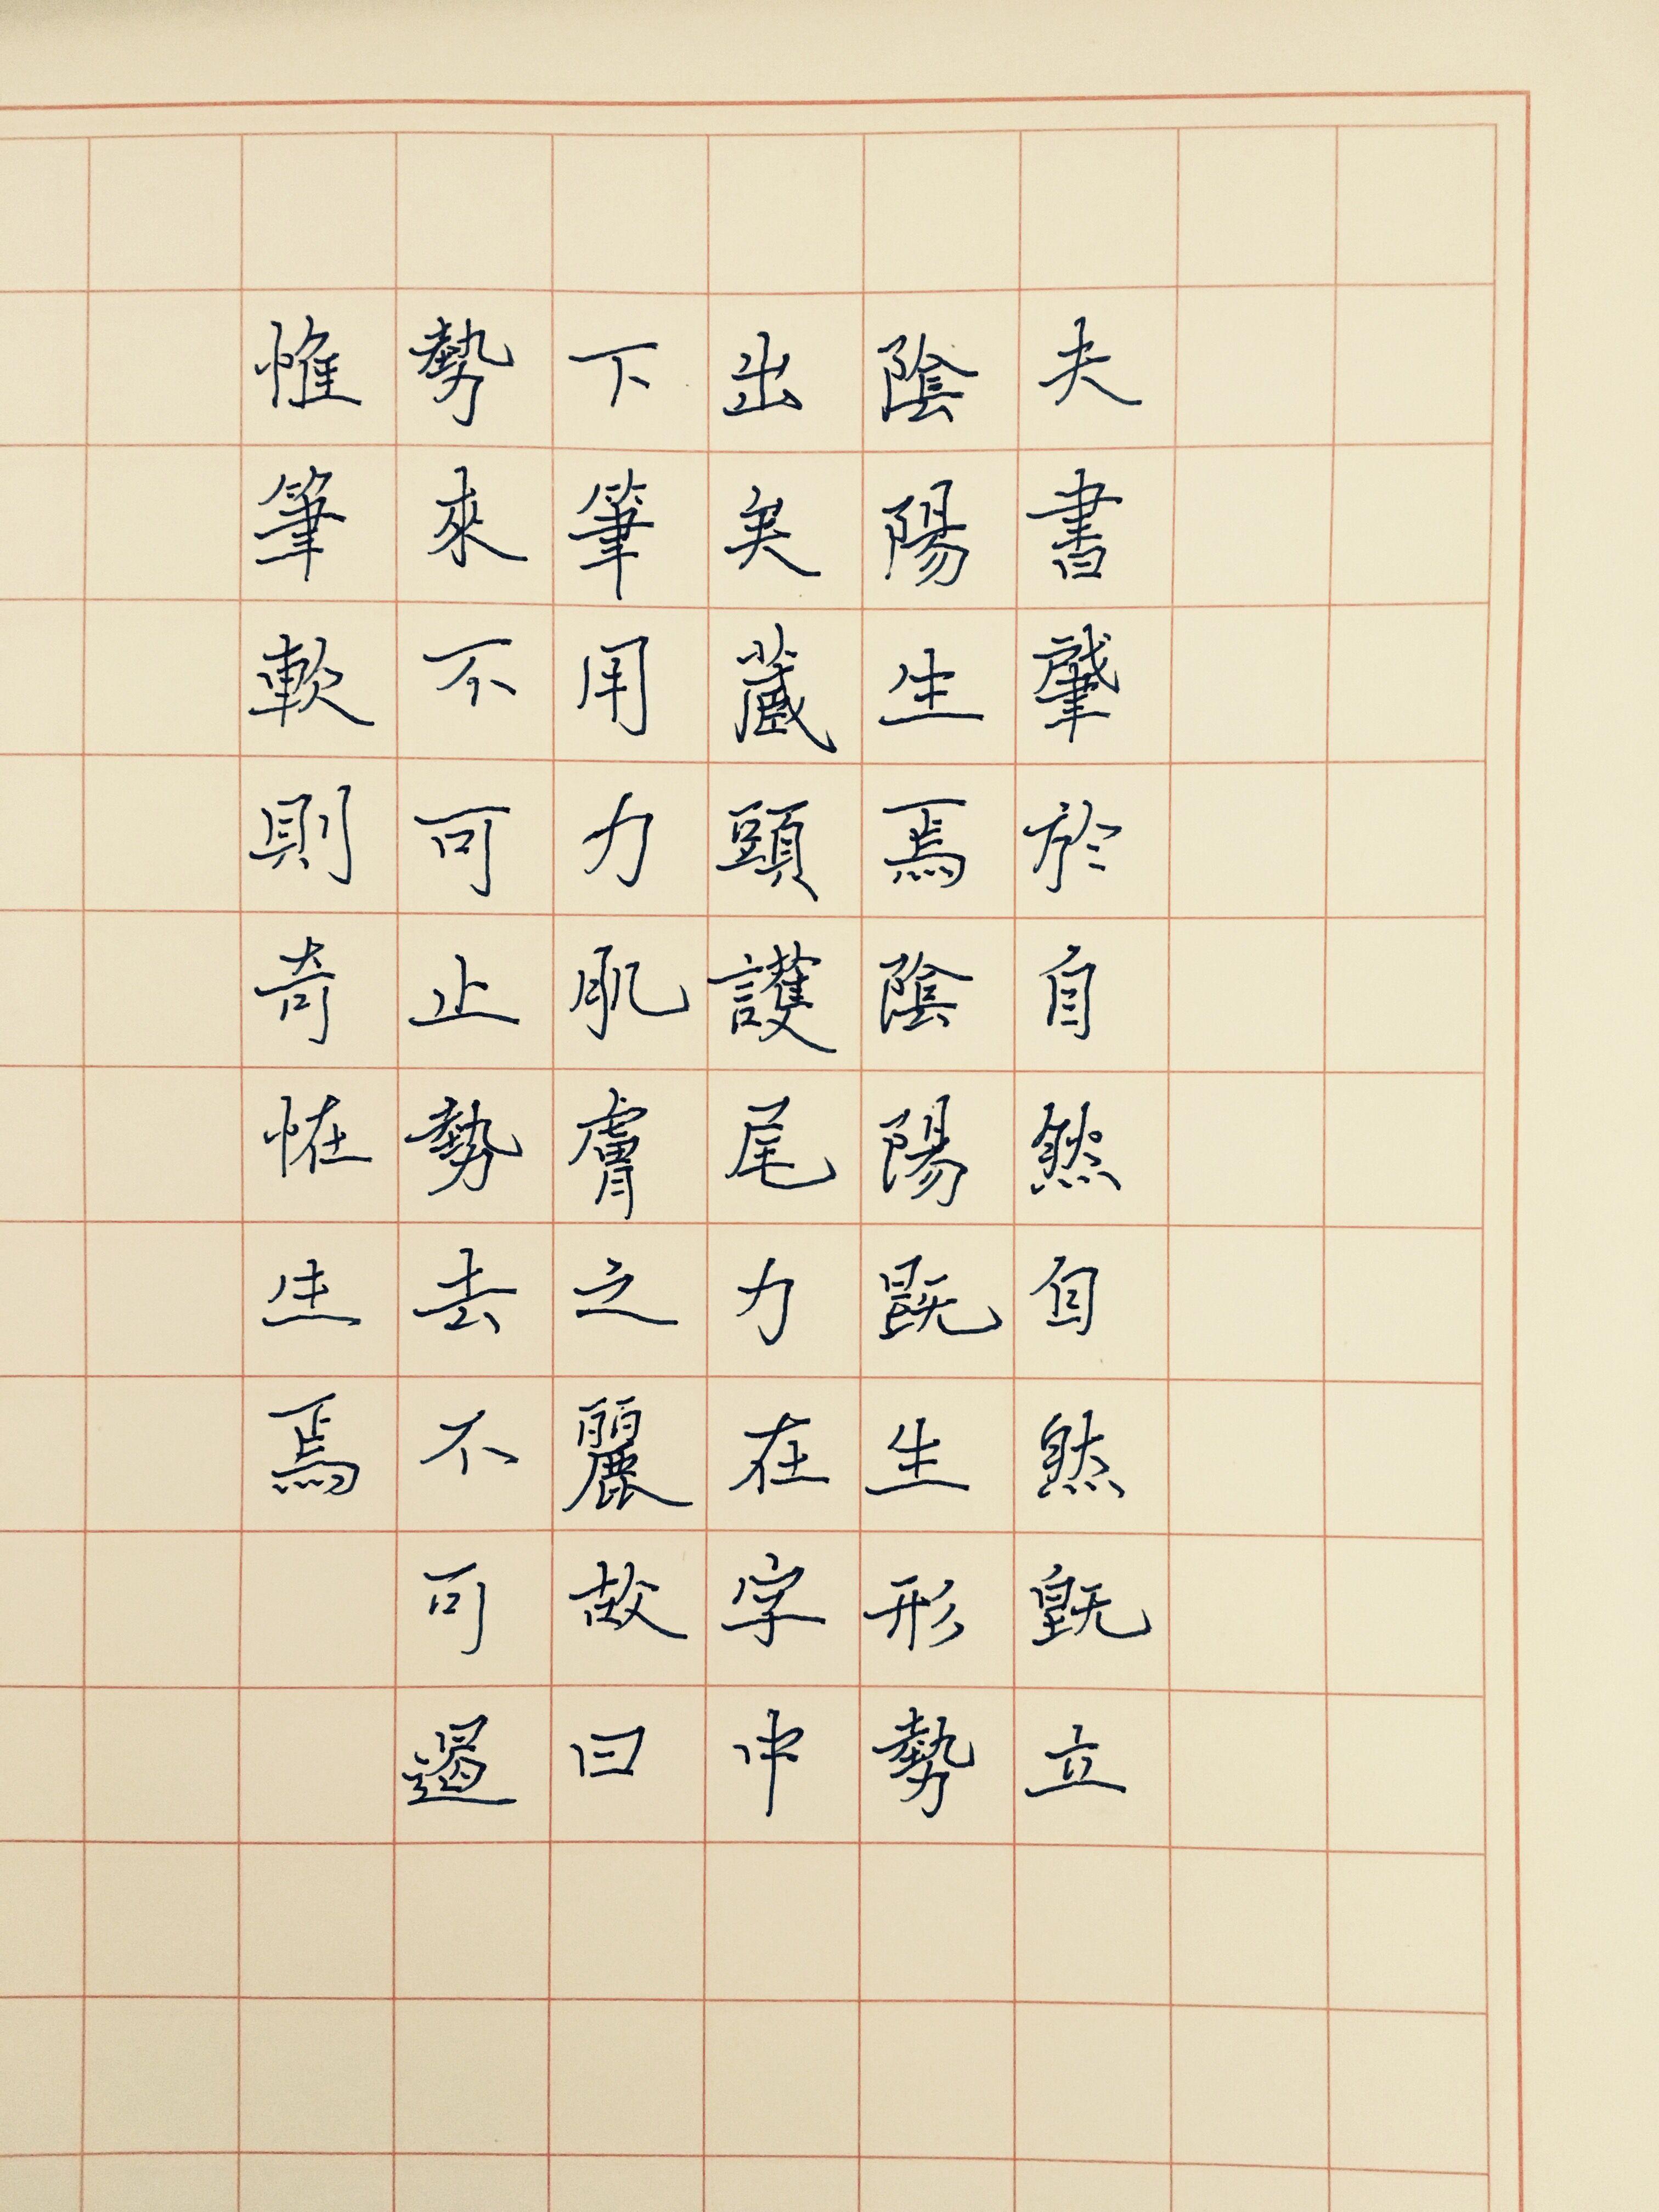 夫書肇於自然自然既立
陰陽生焉陰陽既生形勢
出矣藏頭護尾力在字中
下筆用力肌膚之麗故曰
勢來不可止勢去不可遏
惟筆軟則奇怪生焉